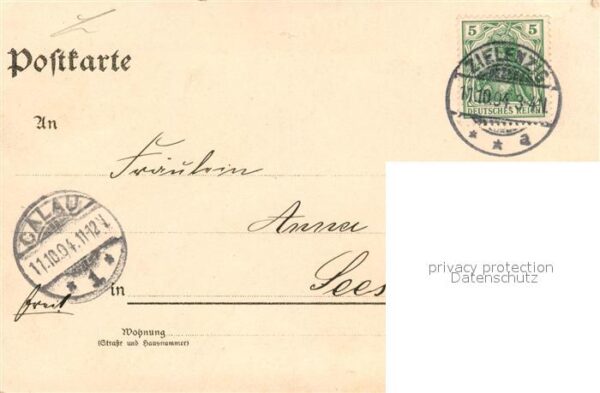 5 5
Postkarte
ZIELENZIG
11.10.04.3-4N
DEUTSCHES REICH
* * a
An
Fräulein
CALAU
Anna
11.10.04.11-12V
* 1 *
privacy protection
Datenschutz
in Sees
frei
Wohnung
(Straße und Hausnummer)